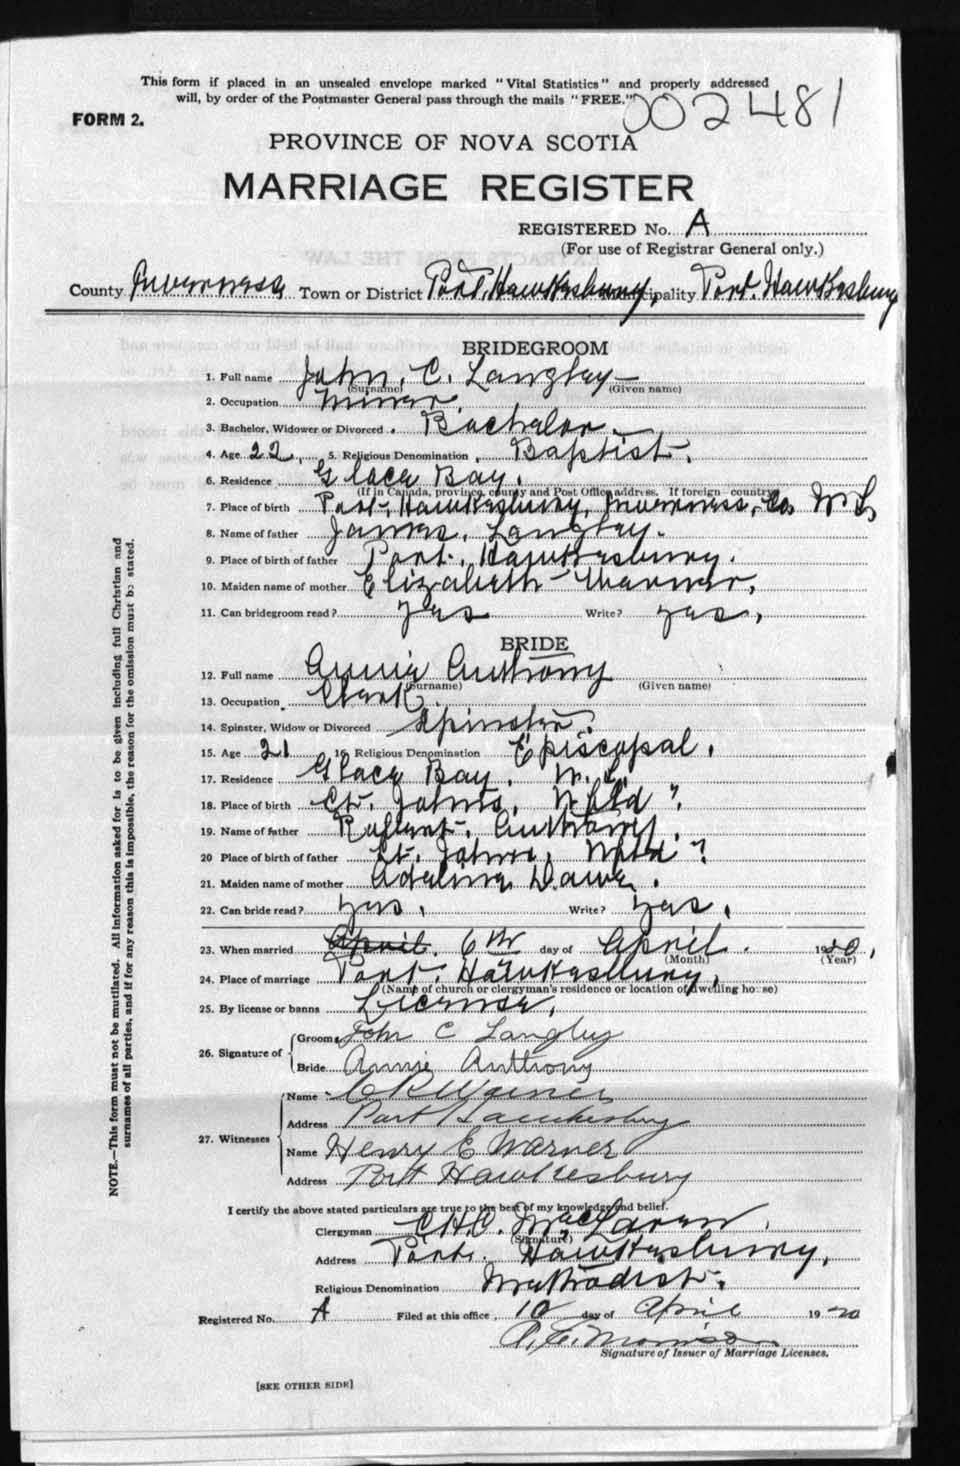 This form if placed in an unsealed envelope marked "Vital Statistics" and properly addressed
will, by order of the Postmaster General pass through the mails "FREE."
002481
FORM 2.
PROVINCE OF NOVA SCOTIA
MARRIAGE REGISTER
REGISTERED No. A
(For use of Registrar General only.)
County Inverness Town or District Port Hawkesbury, Municipality Port Hawkesbury
BRIDEGROOM
1. Full name John. C. Langley
(Surname) (Given name)
2. Occupation Miner
3. Bachelor, Widower or Divorced Bachelor
4. Age 22 5. Religious Denomination Baptist.
6. Residence Glace Bay.
(If in Canada, province, county and Post Office address. If foreign country
7. Place of birth Port Hawkesbury, Inverness, Co N S
8. Name of father James Langley.
9. Place of birth of father Port Hawkesbury.
10. Maiden name of mother Elizabeth Warner,
11. Can bridegroom read? yes Write? yes,
BRIDE
12. Full name Annie Anthony
(Surname) (Given name)
13. Occupation Clerk
14. Spinster, Widow or Divorced Spinster.
15. Age 21 16. Religious Denomination Episcopal.
17. Residence Glace Bay. N. S.
18. Place of birth St. Johns, Nfld ?
19. Name of father Anthony.
20 Place of birth of father St. Johns, Nfld ?
21. Maiden name of mother Adelina Dawe.
22. Can bride read? yes, Write? yes,
23. When married April 6th day of April 1920,
(Month) (Year)
24. Place of marriage Port Hawkesbury,
(Name of church or clergyman's residence or location of dwelling house)
25. By license or banns License,
26. Signature of Groom John C Langley
Bride Annie Anthony
27. Witnesses Name Warner
Address Port Hawkesbury
Name Henry E Warner
Address Port Hawkesbury
I certify the above stated particulars are true to the best of my knowledge and belief.
Clergyman C.H.C. MacLaren,
(Signature)
Address Port Hawkesbury,
Religious Denomination Methodist.
Registered No. A Filed at this office, 10 day of April 1920
Morrison
Signature of Issuer of Marriage Licenses.
[SEE OTHER SIDE]
NOTE.—This form must not be mutilated. All information asked for is to be given including full Christian and
surnames of all parties, and if for any reason this is impossible, the reason for the omission must be stated.